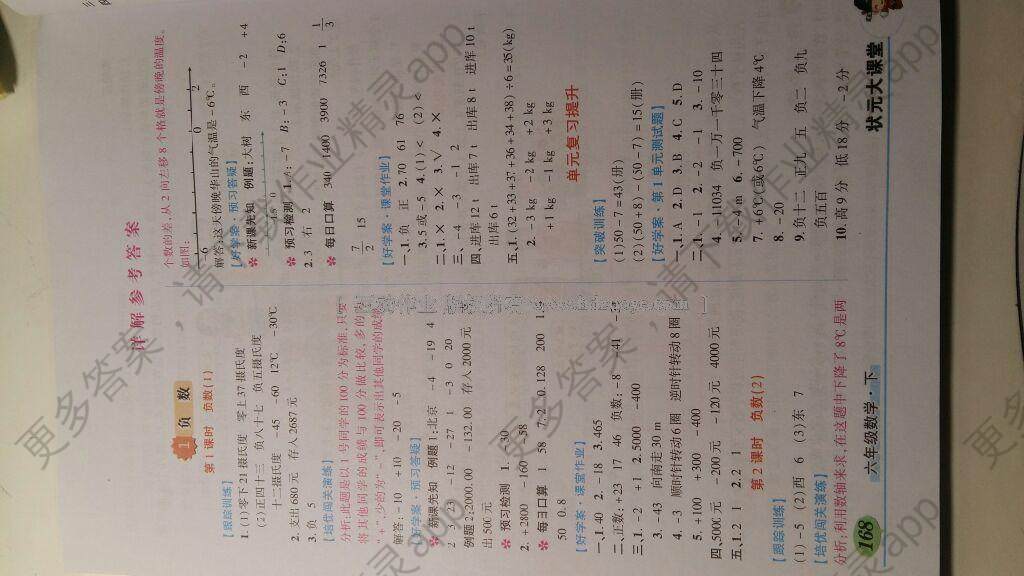 详解参考答案
1 负数
第1课时 负数(1)
【跟踪训练】
1. (1)零下21摄氏度 零上37摄氏度
(2)正四十三 负八十七 负五摄氏度
十二摄氏度 -45 -60 12℃ -30℃
2. 支出680元 存入2687元
3. 负 5
【培优闯关演练】
分析:此题是以1号同学的100分为标准,只要
将其他同学的成绩与100分做比较,多的为
“+”,少的为“-”,即可表示出其他同学的成绩。
解答:-10 +10 -20 -5
【好学案·预习答疑】
新课先知 例题1:北京 -4 -19 4
例题2:2000.00 -132.00 存入2000元
出500元
预习检测 1.
2. +2800
每日口算 1 58 7.2 0.128 200
50 0.8
【好学案·课堂作业】
一、1.40 2. -18 3.465
二、正数:+23 17 46 负数:-8
三、1. -2 +1 2.5000 -400
3. -43 向南走30 m
4. -3 顺时针转动6圈 逆时针转动8圈
5. +100 +300 -400
四、5000元 -200元 -120元 4000元
五、1.2 1 2.2 1
第2课时 负数(2)
【跟踪训练】
(1)-5 (2)西 6 (3)东 7
【培优闯关演练】
分析:利用数轴来求,在这题中下降了8℃是两
个数的差,从2向左移8个格就是傍晚的温度。
如图:
-6 0 2
解答:这天傍晚华山的气温是-6℃。
【好学案·预习答疑】
新课先知 例题:大树 东 西 -2 +4
预习检测 1. A:-7 B:-3 C:1 D:6
2.3 右 2
每日口算 340 1400 3900 7326 1 1/3
7/2 15
【好学案·课堂作业】
一、1.负 正 2.70 61 76
3.5或-5 4.(1)< (2)<
二、1.× 2.× 3.√ 4.×
三、-4 -3 -1 2
四、进库12 t 出库7 t 出库8 t 进库10 t
出库6 t
五、1.(32+33+37+36+34+38)÷6=35(kg)
2. -3 kg -2 kg +2 kg
+1 kg -1 kg +3 kg
单元复习提升
【突破训练】
(1)50-7=43(册)
(2)(50+8)-(50-7)=15(册)
【好学案·第1单元测试题】
一、1.A 2.D 3.B 4.C 5.D
二、1. -1 2. -2 -1 3. -10
4. -11034 负一万一千零三十四
5. -4 m 6. -700
7. +6℃(或6℃) 气温下降4℃
8. -20
9. 负十三 正九 五 负二 负九
负五百
10. 高9分 低18分 -2分
168 六年级数学·下
状元大课堂
更多答案,请下载作业精灵app